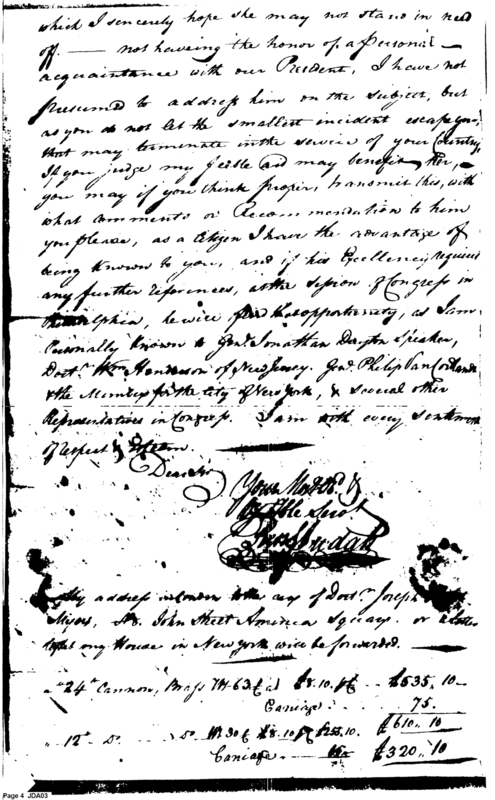 which I sincerely hope she may not stand in need
off. — not haveing the honor of a Personal —
acquaintance with our President, I have not
presumed to address him on the subject, but
as you do not let the smallest incident escape you
that may terminate in the service of your Country,
If you judge my feeble aid may benefit Her, —
you may if you think proper, transmit this, with
what comments or Recommendation to him
you please, as a Citizen I have the advantage of
being known to you, and if his Excellency requires
any further references, at the Session of Congress in
Philadelphia, he will find that opportunity, as I am
Personally known to Jonathan Dayton Speaker,
Doctr. Wm Henderson of New Jersey. Philip Van Cortlandt
& the Members for the City of New York, & several other
Representatives in Congress. I am with every sentiment
of respect & Esteem
Dear Sir
Your Most Obd. &
Hble Servt

My address in London to the care of Doctr. Joseph
Myers, John Street America Square. or a letter
my House in New York will be forwarded.
24 Cannon, Brass Wt 63 at £8.10 £535.. 10
Carriage 75.
£610.. 10
12 Do Do Wt 30 £8.10 £255.10
Carriage £320.. 10
Page 4 JDA03